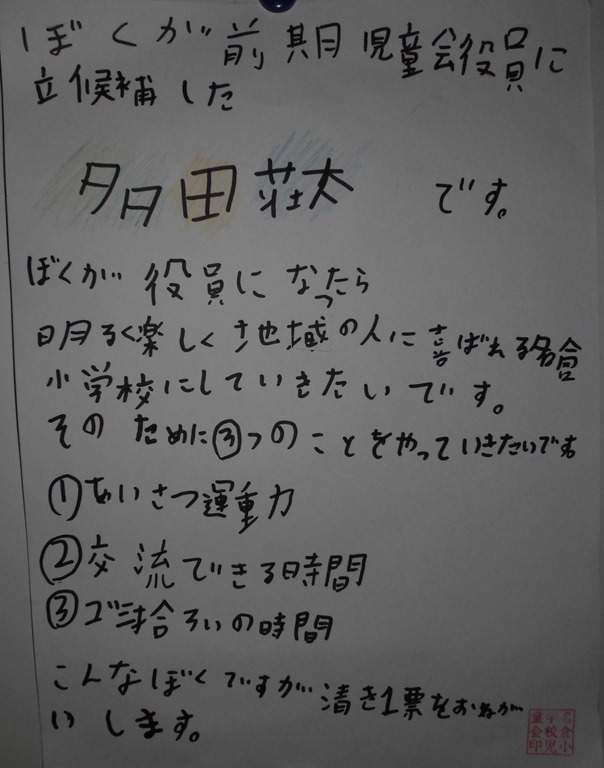 ぼくが前期児童会役員に
立候補した
多田荘太 です。
ぼくが役員になったら
明るく楽しく地域の人に喜ばれる名倉
小学校にしていきたいです。
そのために③つのことをやっていきたいです
①あいさつ運動
②交流できる時間
③ゴミ拾ろいの時間
こんなぼくですが清き1票をおねが
いします。